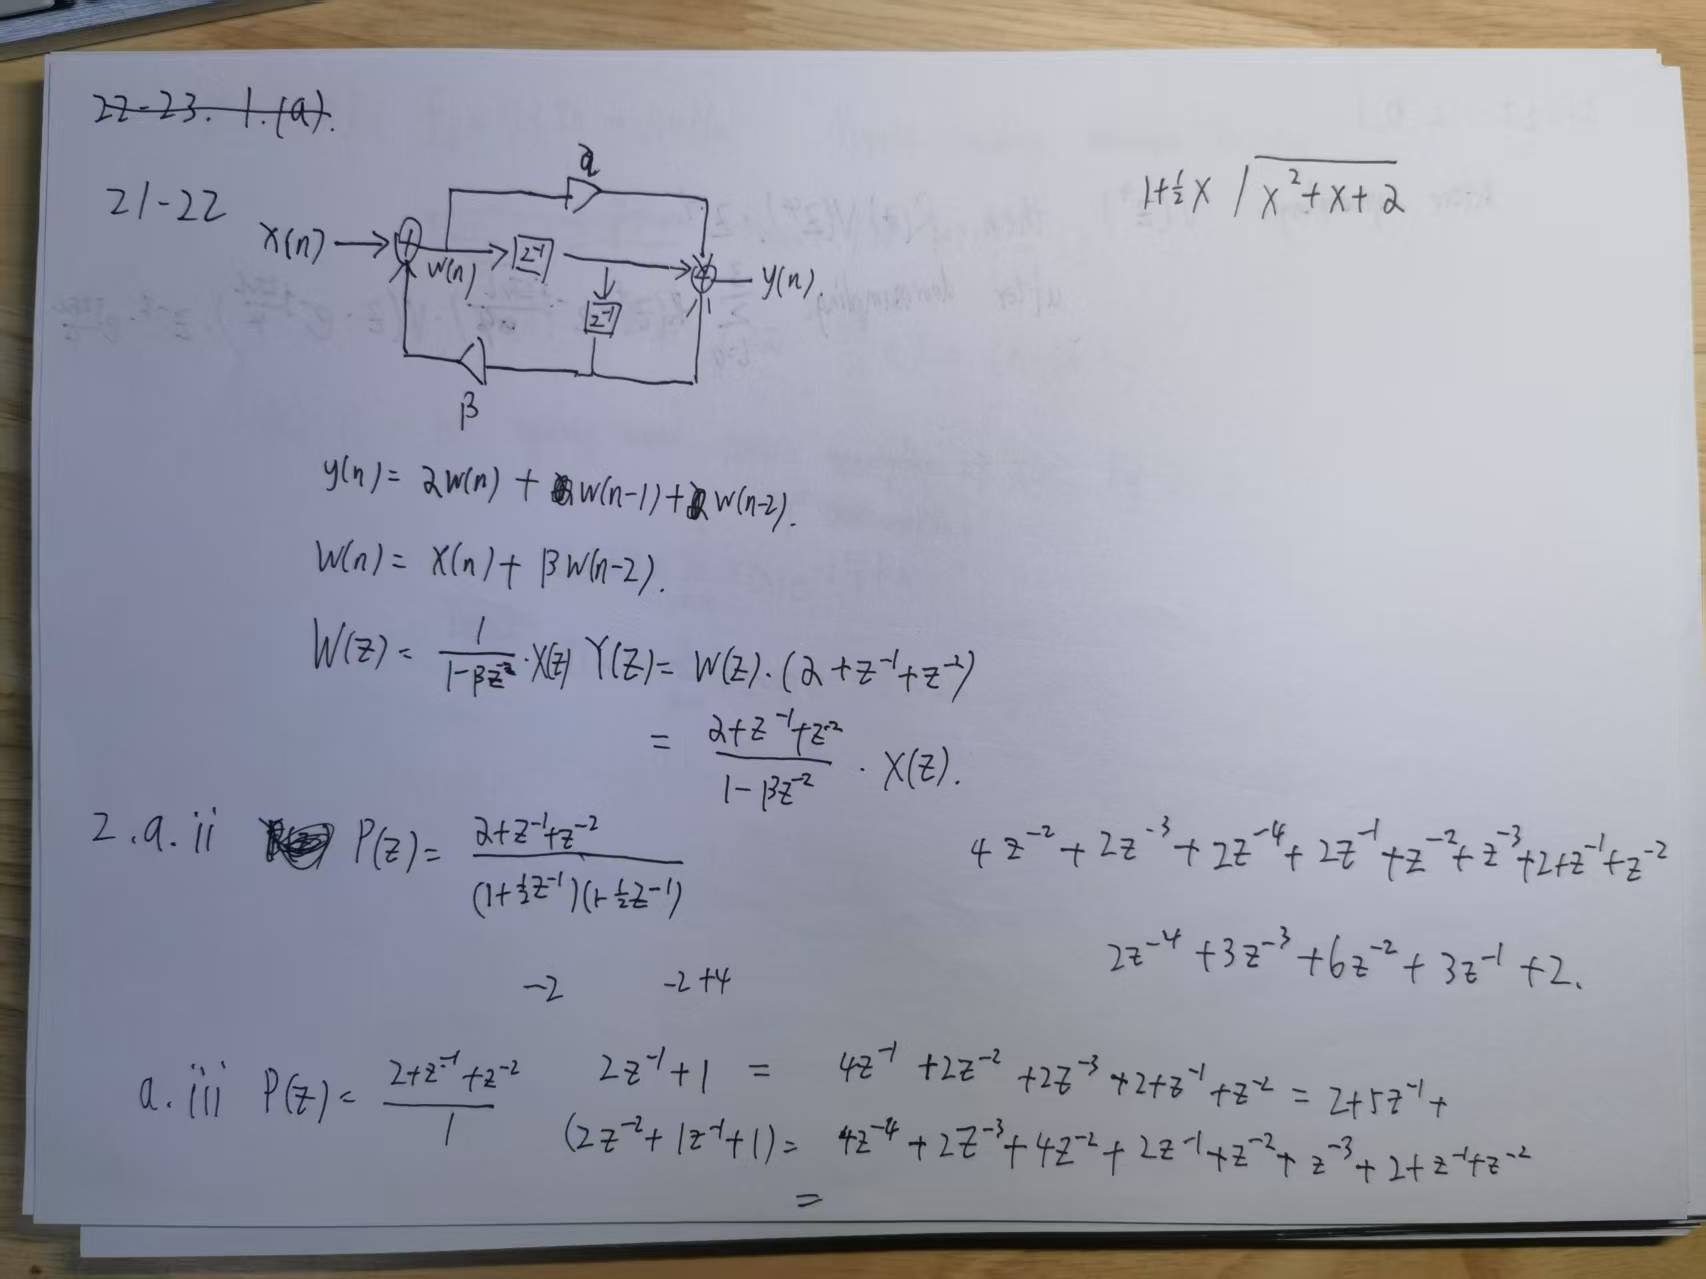 22-23. 1.(a).
21-22
2
1+½x / x²+x+2
x(n)
w(n)
z⁻¹
y(n).
z⁻¹
β
y(n) = 2w(n) + w(n-1) + w(n-2).
W(n) = x(n) + βw(n-2).
W(z) = 1/(1-βz⁻²) · X(z) Y(z) = W(z)·(2+z⁻¹+z⁻²)
= (2+z⁻¹+z⁻²)/(1-βz⁻²) · X(z).
2.a.ii P(z) = (2+z⁻¹+z⁻²)/((1+½z⁻¹)(1-½z⁻¹))
4z⁻²+2z⁻³+2z⁻⁴+2z⁻¹+z⁻²+z⁻³+2+z⁻¹+z⁻²
2z⁻⁴+3z⁻³+6z⁻²+3z⁻¹+2.
-2 -2+4
a.iii P(z) = (2+z⁻¹+z⁻²)/1 2z⁻¹+1 = 4z⁻¹+2z⁻²+2z⁻³+2+z⁻¹+z⁻² = 2+5z⁻¹+
(2z⁻²+1z⁻¹+1) = 4z⁻⁴+2z⁻³+4z⁻²+2z⁻¹+z⁻²+z⁻³+2+z⁻¹+z⁻²
=